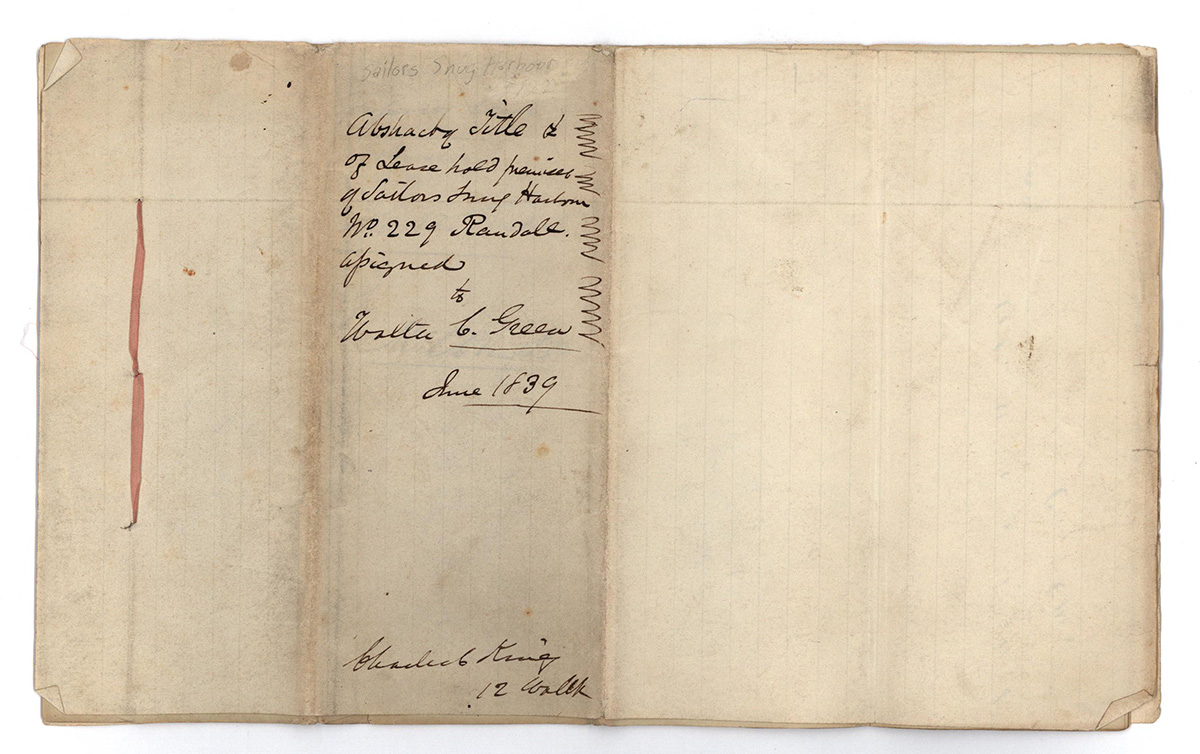 Sailors Snug Harbour
Abstract of Title &
of Lease hold premises
of Sailors Snug Harbour
No. 229 Randall.
assigned
to
Walter C. Green
June 1839
Charles C King
12 Wall